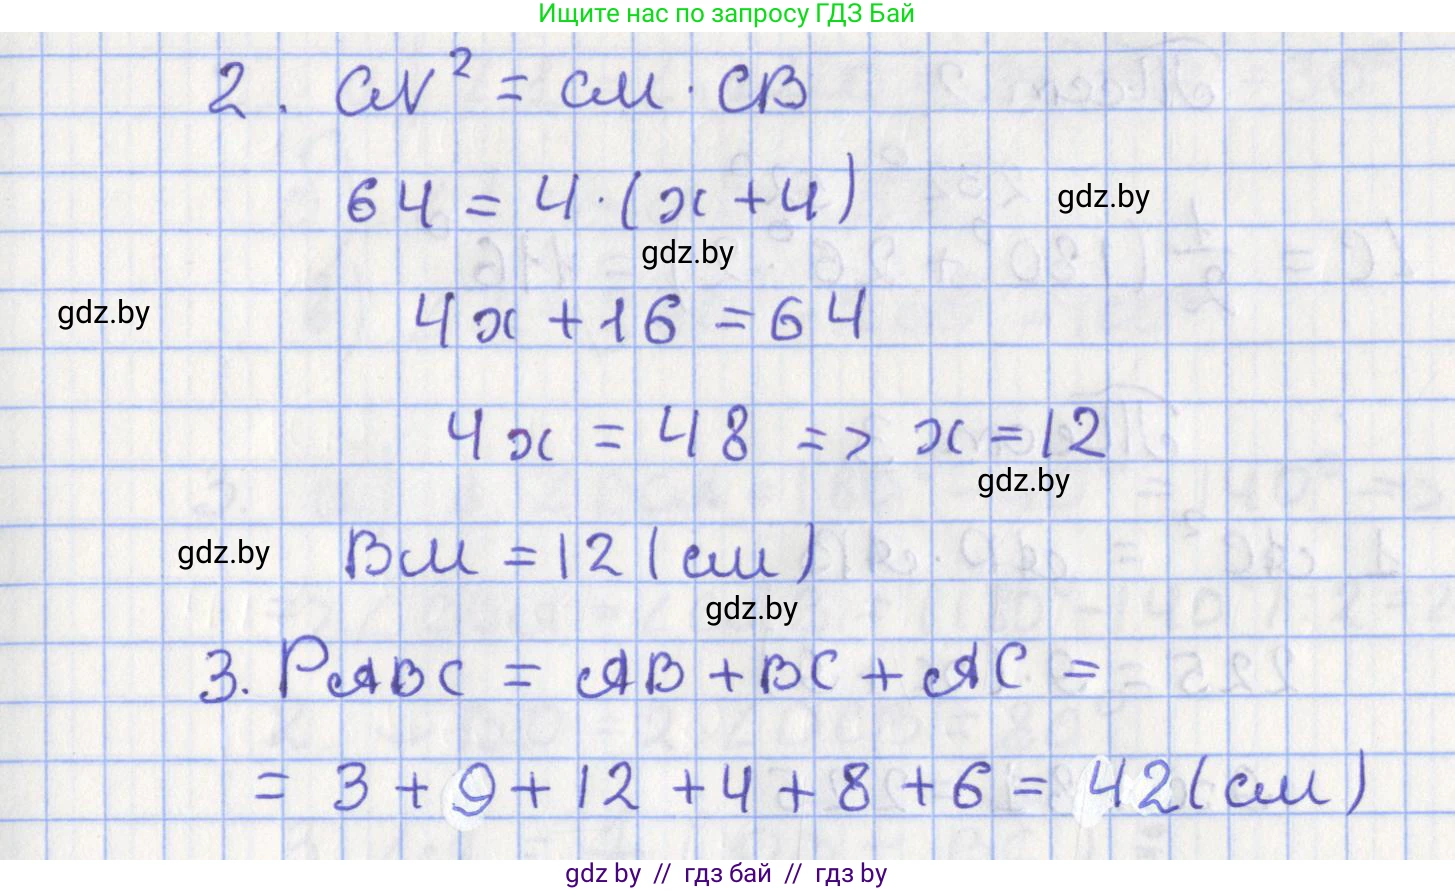 Ищите нас по запросу ГДЗ Бай
2. CN² = CM · CB
64 = 4 · (x + 4)
gdz.by
gdz.by
4x + 16 = 64
gdz.by
4x = 48 => x = 12
gdz.by
BM = 12 (см)
gdz.by
gdz.by
3. PABC = AB + BC + AC =
= 3 + 9 + 12 + 4 + 8 + 6 = 42 (см)
gdz.by // гдз бай // гдз by